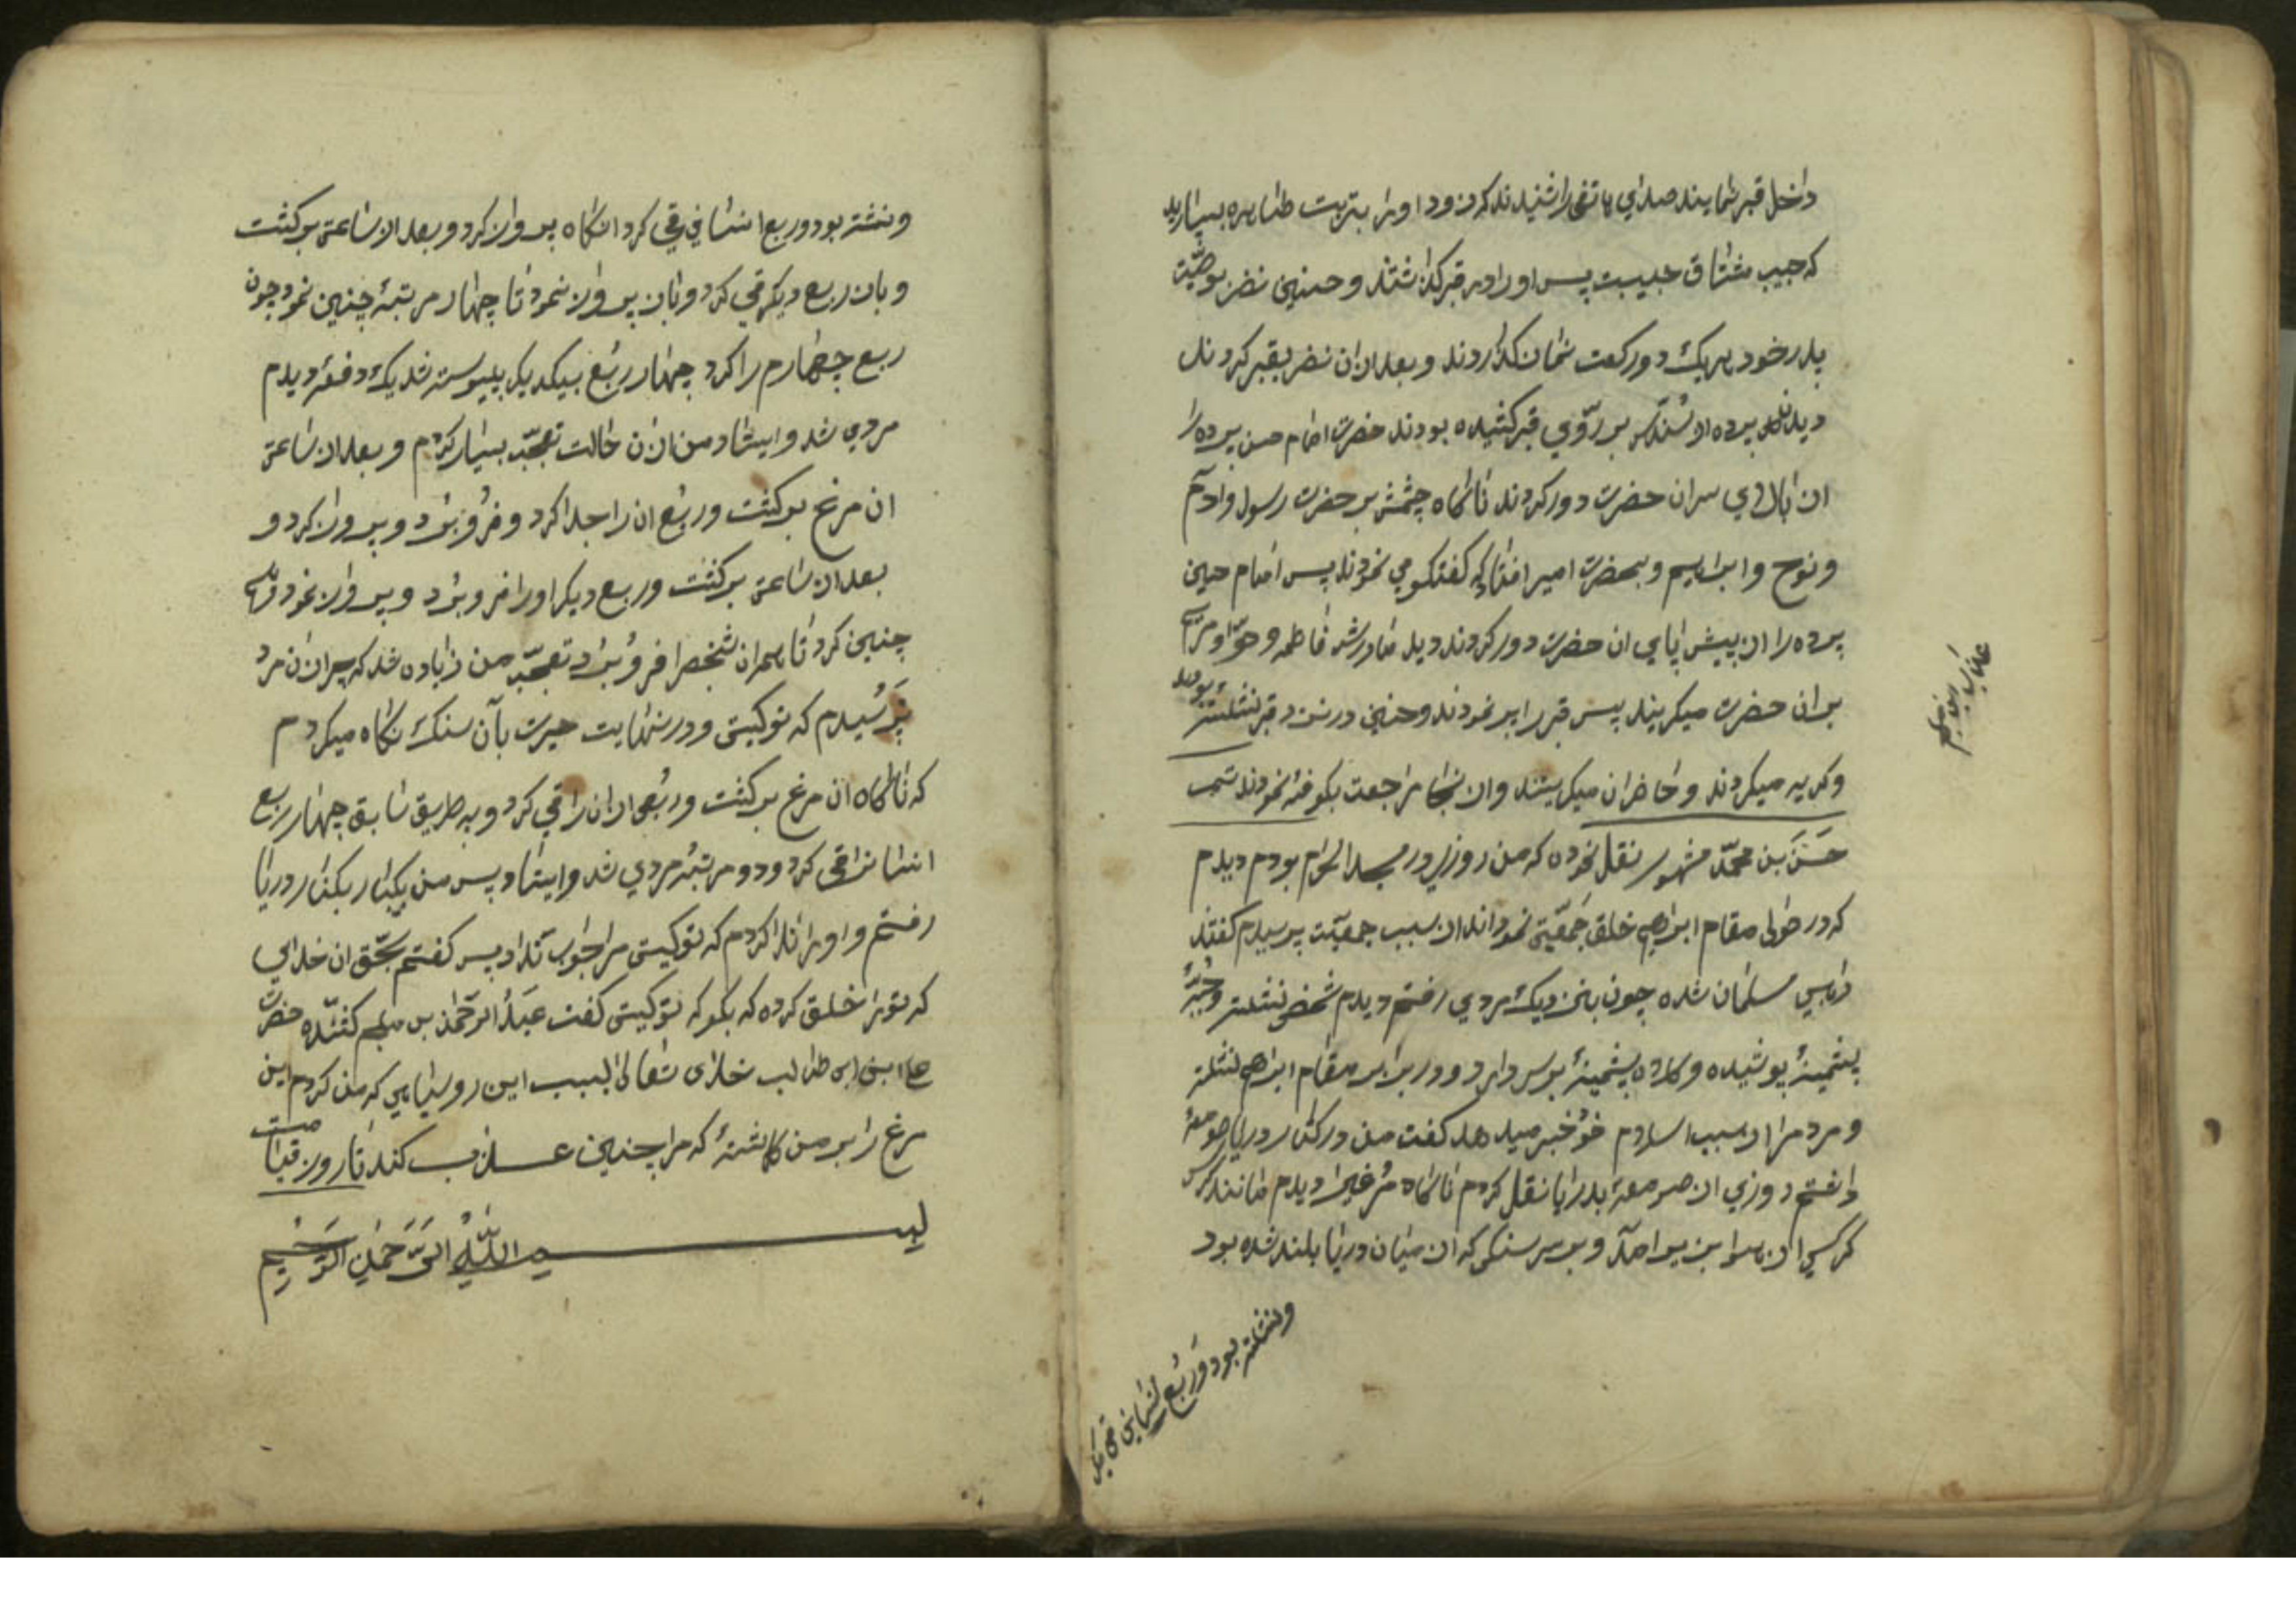 داخل قبر نمایند صدای هاتفی را شنیدند که زود او را بتربت طاهره بسپارید
که حبیب مشتاق حبیبست پس او را در قبر گذاشتند و حسنین نضر بوصیّت
پدر خود هریک دو رکعت نماز گذاردند و بعد از ان نضر بقبر کردند
دیدند پرده از سندس بر رّوی قبر کشیده بودند حضرت امام حسن پرده را
از بالای سر ان حضرت دور کردند ناگاه چشمش بر حضرت رسول و ادم
و نوح و ابراهیم و بحضرت امیر افتاد که گفتگو می نمودند پس امام حسین
پرده را از پیش پای ان حضرت دور کردند دید مادرش فاطمه و حوّا و مریم
بر ان حضرت میگریند پس قبر را پر نمودند و حسنین در نزد قبر نشسته بودند
و گریه میکردند و حاضران میگریستند و از انجا مراجعت بکوفه نمودند شب
عذاب ابن ملجم
حَسَن بن محمّد مشهور نقل نموده که من روزی در مسجد الحرام بودم دیدم
که در حولی مقام ابراهیم خلق جمعّیتی نموداند از سبب جمعیّت پرسیدم گفتند
راهبی مسلمان شده چون بنزدیک مردی رفتم دیدم شخصی نشسته و جُبّهٔ
پشمینهٔ پوشیده و کلاه پشمینهٔ بر سر دارد و در برابر مقام ابراهیم نشسته
و مردم را از سبب اسلام خوُد خبر میدهد گفت من در کنار دریا صومعهٔ
داشتم روزی از صومعهٔ بدریا نقل کردم ناگاه مُرغی را دیدم مانند کرکس
کرکسی از هوا بزیر امد و بر سر سنگی که از میان دریا بلند شده بود
و نشسته بود و رَبُع انسانی قی کرد
و نشسته بود و ربع انسانی قی کرد انگاه پرواز کرد و بعد از ساعتی برگشت
و باز ربع دیگر قی کرد و باز پرواز نمود تا چهار مرتبهٔ چنین نمود چون
ربع چهارم را کرد چهار ربُع بیکدیگر پیوسته شد یک دفعه دیدم
مردی شد و ایستاد من از ان حالت تعجّب بسیار کردم و بعد از ساعتی
ان مرغ برگشت و ربُع ان را جدا کرد و فرُو بُرد و پرواز کرد و
بعد از ساعتی برگشت و ربع دیگر او را فرو برُد و پرواز نمود و
چنین کرد تا همه ان شخص را فرُو بُرد تعجّب من زیاده شد که چرا از ان مرد
پَرسُیدم که تو کیستی و در نهایت حیرت بآن سنگ نگاه میکردم
که ناگاه ان مرغ برگشت و ربُعی از ان را قی کرد و به طریق سابق چهار ربع
انسان را قی کرد و دو مرتبُه مردی شد و ایستاد پس من یکبار بکنار دریا
رفتم و او را ندا کردم که تو کیستی مرا جواب نداد پس گفتم بحّق ان خدای
که تو را خلق کرده که بگو که تو کیستی گفت عَبدُ الرّحمٰن بن ملجم کشنده حضرت
علی ابن ابی طالب خدای تعالی بسبب این روسیاهی که من کردم این
مرغ را بر من گماشتهٔ که مرا چنین عذاب کند تا روز قیامت
بسم اللّٰهِ الرَّحمٰنِ الرَّحیم